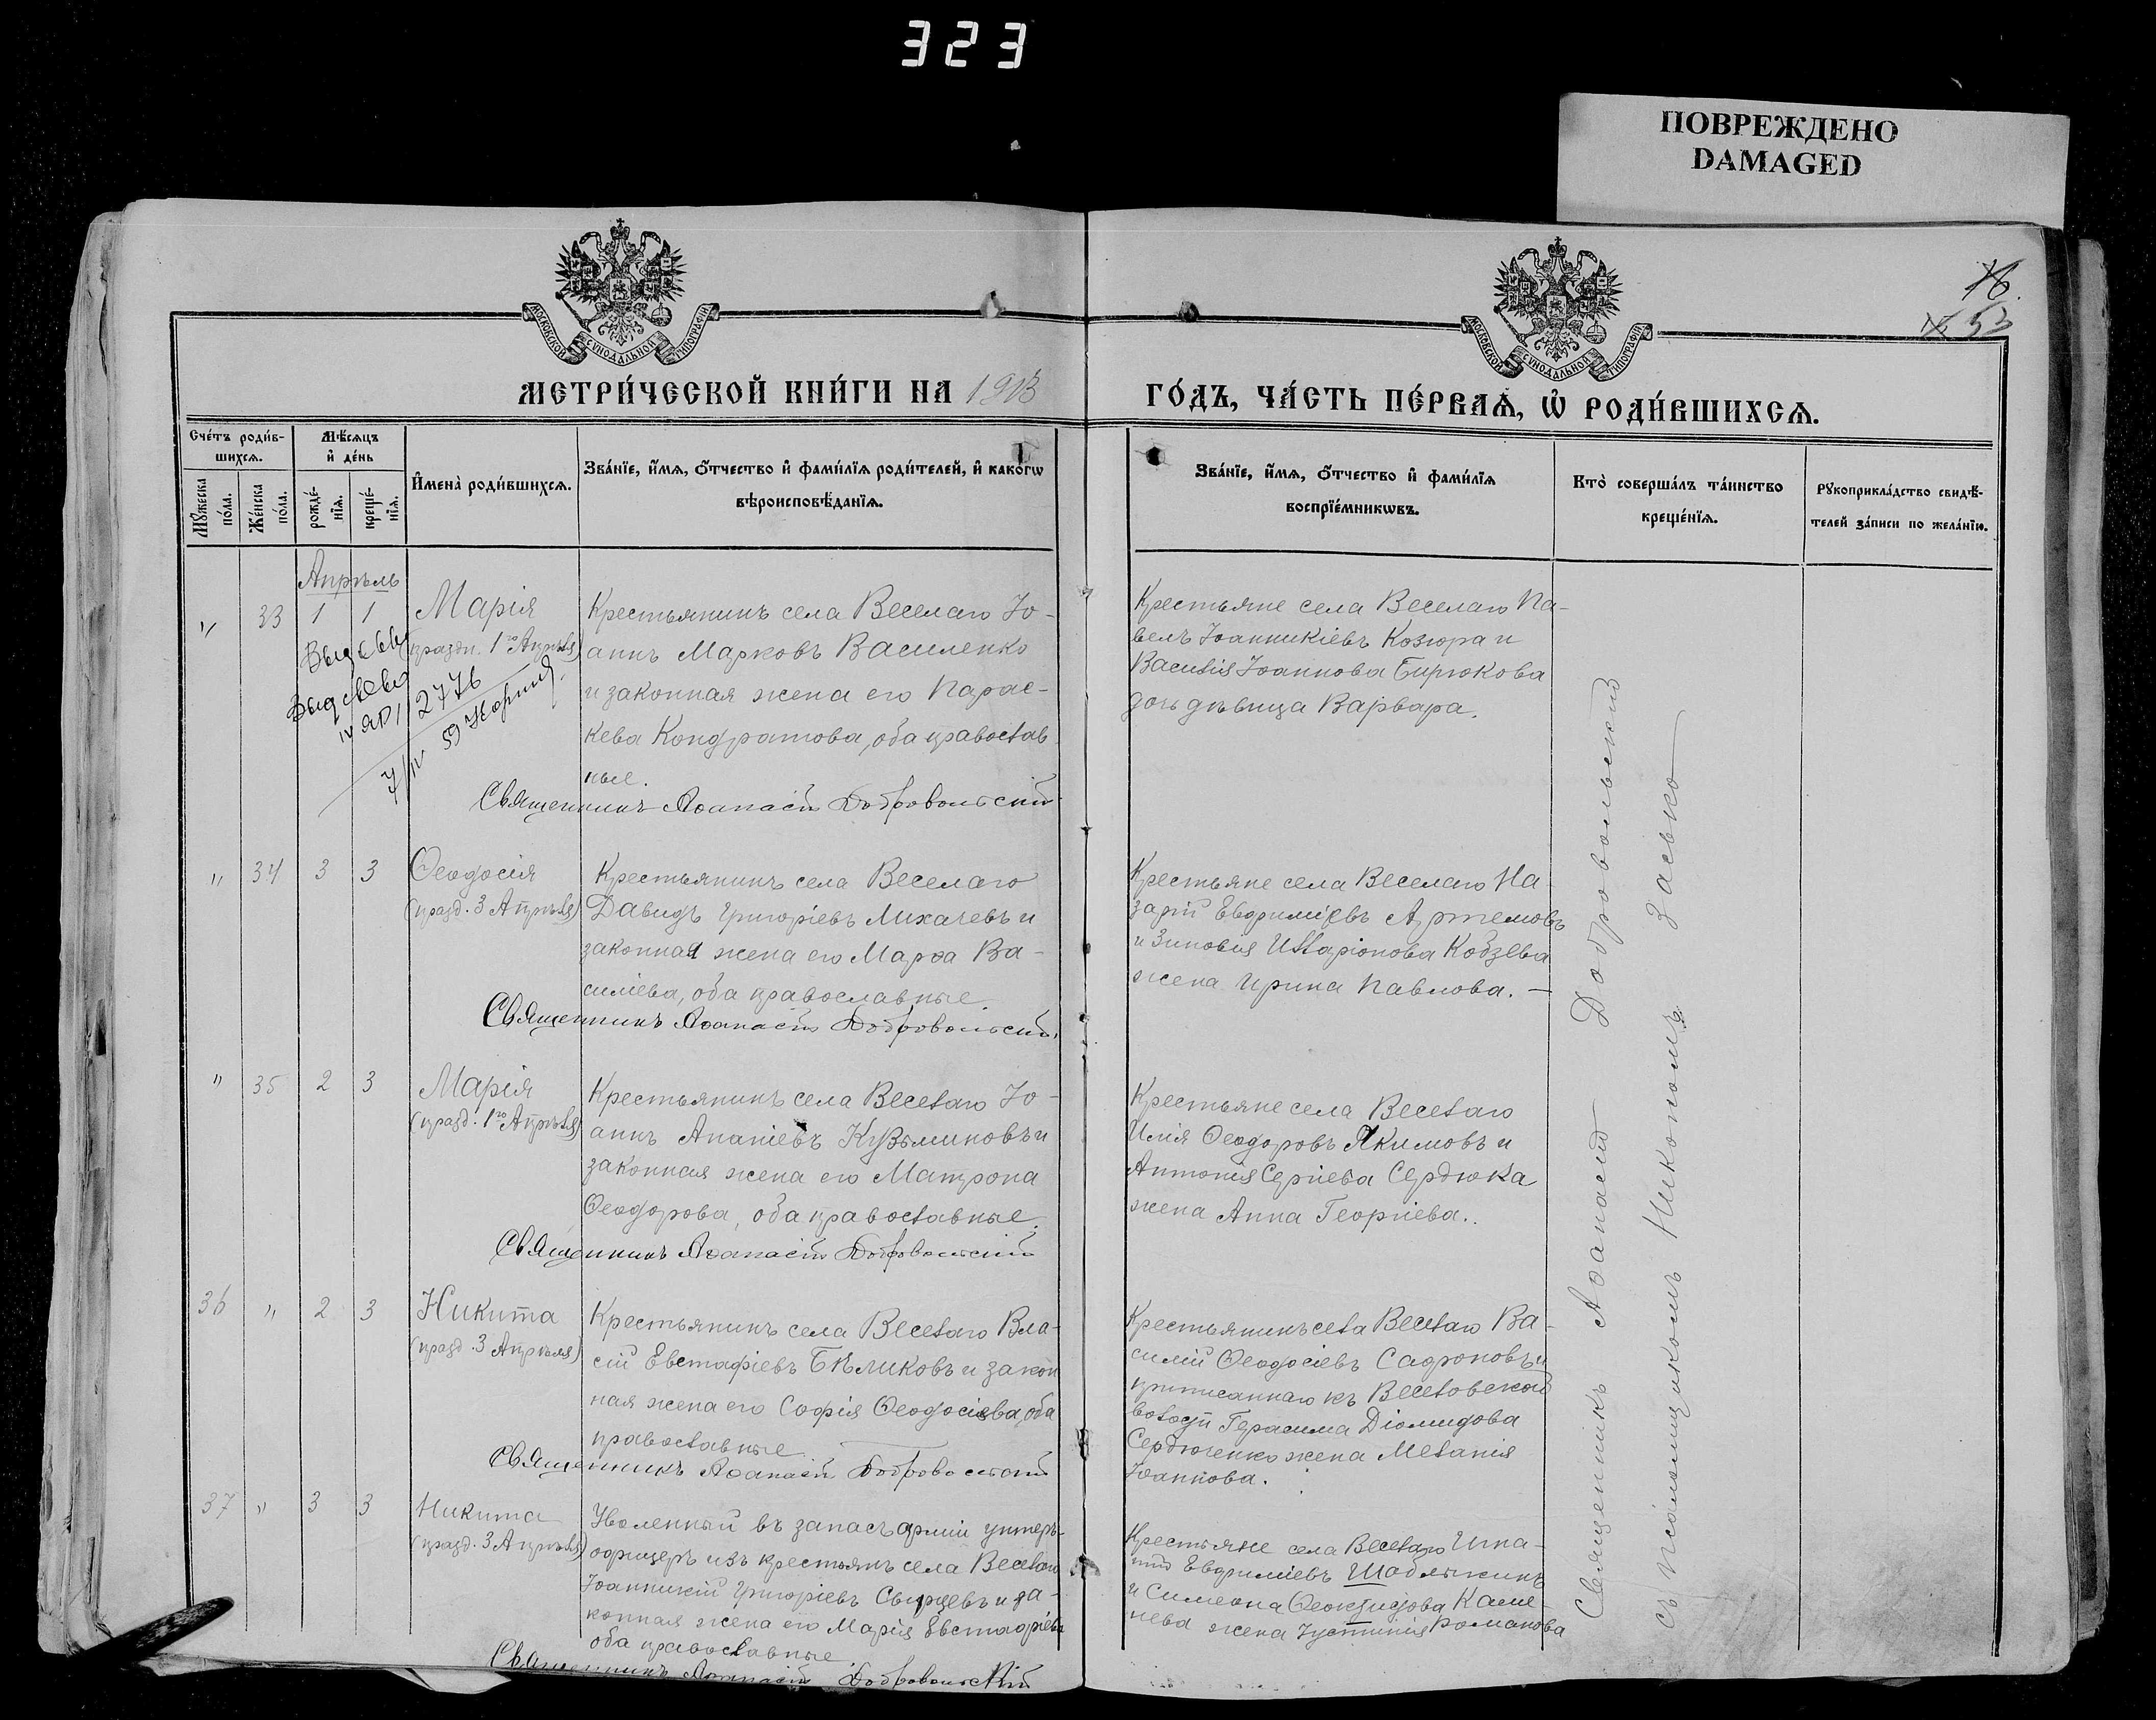 323
ПОВРЕЖДЕНО
DAMAGED
МОСКОВСКОЙ СѴНОДАЛЬНОЙ ТИПОГРАФІИ
МОСКОВСКОЙ СѴНОДАЛЬНОЙ ТИПОГРАФІИ
53
МЕТРИ́ЧЕСКОЙ КНИ́ГИ НА 1913
ГО́ДЪ, ЧА́СТЬ ПЕ́РВАѦ, Ѽ РОДИ́ВШИХСѦ.
Сче́тъ роди́в-
шихсѧ.
Мѣ́сѧцъ
и҆ де́нь
Мꙋ́жеска по́ла.
Же́нска по́ла.
рожде́-
нїѧ.
креще́-
нїѧ.
И҆мена̀ роди́вшихсѧ.
Зва́нїе, и҆́мѧ, ѻ҆́тчество и҆ фами́лїѧ роди́телей, и҆ како́гѡ
вѣроисповѣ́данїѧ.
Зва́нїе, и҆́мѧ, ѻ҆́тчество и҆ фами́лїѧ
воспрїе́мникѡвъ.
Кто̀ соверша́лъ та́инство
креще́нїѧ.
Рꙋкоприкла́дство свидѣ́-
телей за́писи по жела́нїю.
Апрѣль
" 33 1 1 Марія
(празд. 1го Апрѣля)
2776
Крестьянинъ села Веселаго Іо-
аннъ Марковъ Василенко
и законная жена его Парас-
кева Кондратова, оба православ
ные.
Священникъ Аѳанасій Добровольскій
Крестьяне села Веселаго Па-
велъ Іоанникіевъ Козюра и
Василія Іоаннова Бирюкова
дочь дѣвица Варвара.
" 34 3 3 Ѳеодосія
(празд. 3 Апрѣля)
Крестьянинъ села Веселаго
Давидъ Григоріевъ Лихачевъ и
законная жена его Марѳа Ва-
силіева, оба православные.
Священникъ Аѳанасій Добровольскій
Крестьяне села Веселаго На-
зарій Евфиміевъ Артемовъ
и Зиновія Иларіонова Кобзева
жена Ирина Павлова. —
" 35 2 3 Марія
(празд. 1го Апрѣля)
Крестьянинъ села Веселаго Іо-
аннъ Ананіевъ Кузьминовъ и
законная жена его Матрона
Ѳеодорова, оба православные.
Священникъ Аѳанасій Добровольскій
Крестьяне села Веселаго
Илія Ѳеодоровъ Якимовъ и
Антонія Сергіева Сердюка
жена Анна Георгіева..
36 " 2 3 Никита
(празд. 3 Апрѣля)
Крестьянинъ села Веселаго Вла-
сій Евстафіевъ Бѣликовъ и закон
ная жена его Софія Ѳеодосіева, оба
православные
Священникъ Аѳанасій Добровольскій
Крестьянинъ села Веселаго Ва-
силій Ѳеодосіевъ Сафроновъ и
приписаннаго къ Веселовской
волости Герасима Діомидова
Сердюченко жена Меланія
Іоаннова.
37 " 3 3 Никита
(празд. 3 Апрѣля)
Уволенный въ запасъ арміи унтеръ-
офицеръ изъ крестьянъ села Веселаго
Іоанникій Григоріевъ Свирцевъ и за-
конная жена его Марія Евстафіева
оба православные
Священникъ Аѳанасій Добровольскій
Крестьяне села Веселаго Игна-
тій Евфиміевъ Шаблыкинъ
и Симеона Ѳеоктистова Каме-
нева жена Іустинія Романова
Священникъ Аѳанасій Добровольскій
съ псаломщикомъ Никономъ Засько